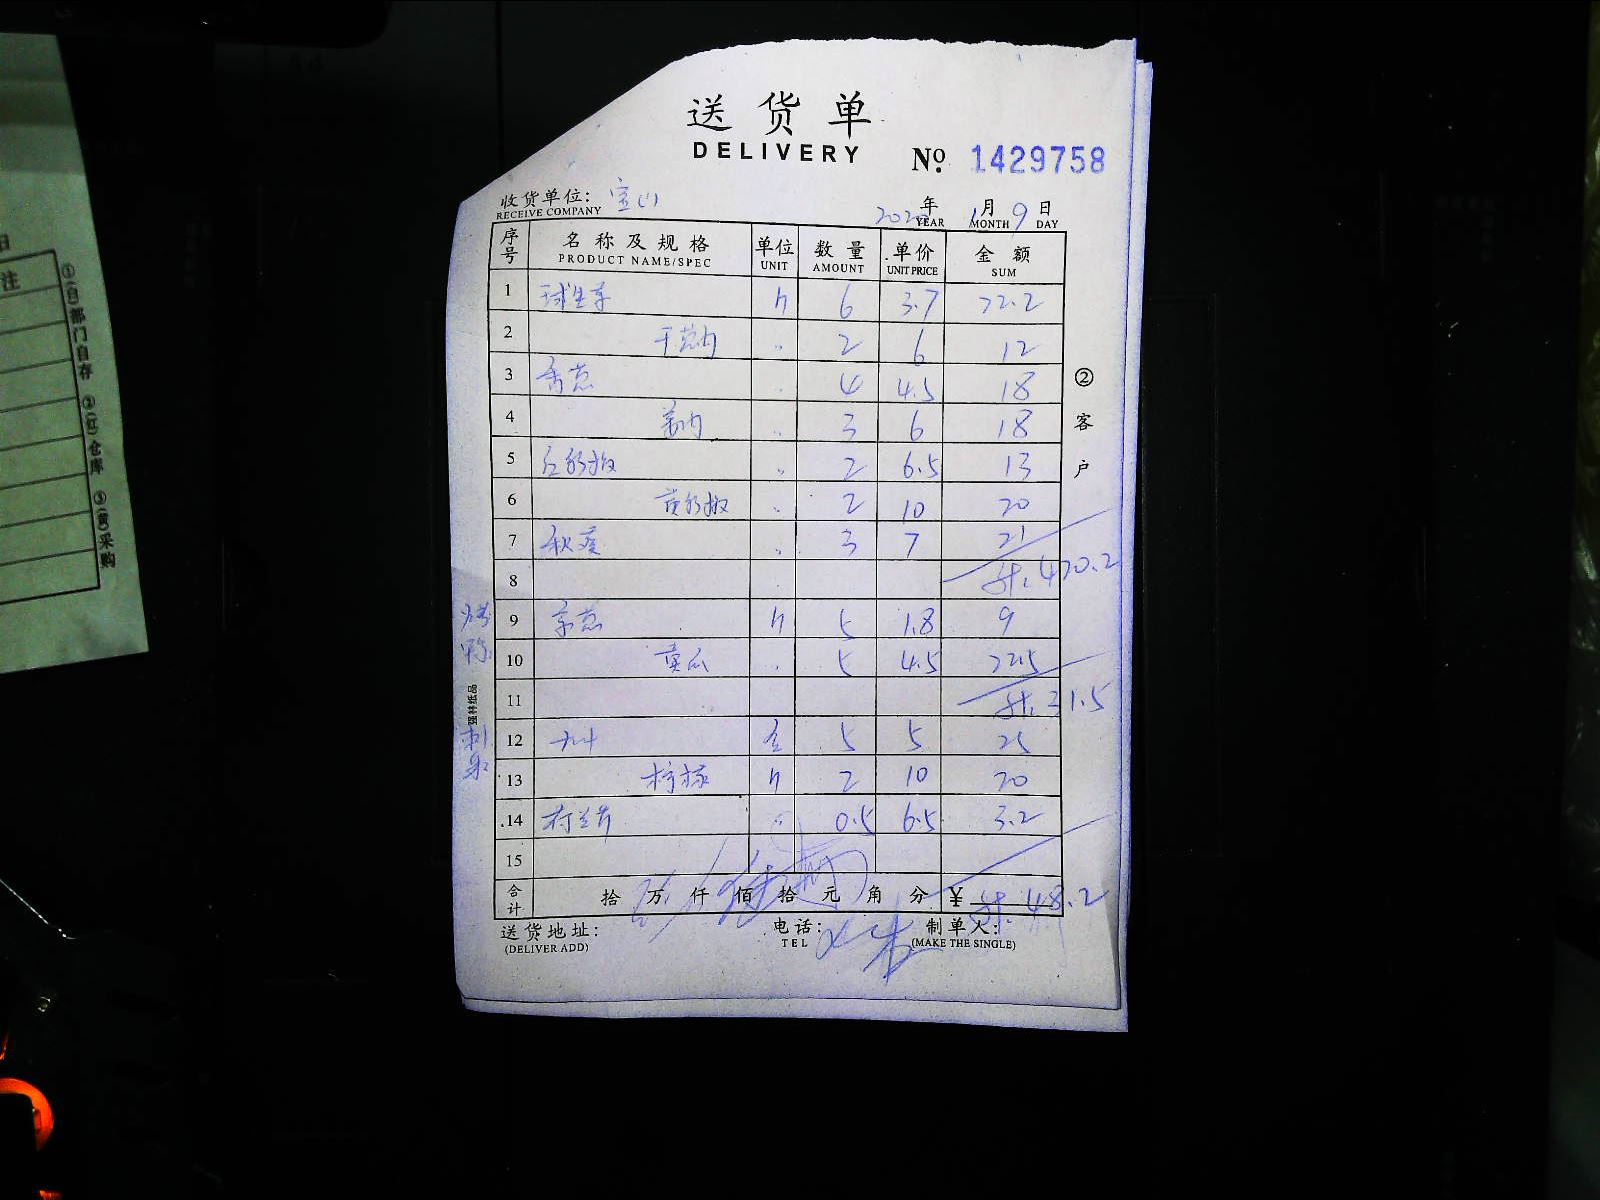 送货单
DELIVERY
No. 1429758
收货单位: 宝(1)
RECEIVE COMPANY
2022 年 YEAR 1 月 MONTH 9 日 DAY
序号 名称及规格 PRODUCT NAME/SPEC 单位 UNIT 数量 AMOUNT 单价 UNIT PRICE 金额 SUM
1 球生菜 斤 6 3.7 22.2
2 干葱肉 〃 2 6 12
3 香葱 〃 4 4.5 18
4 姜肉 〃 3 6 18
5 红彩椒 〃 2 6.5 13
6 黄彩椒 〃 2 10 20
7 秋葵 〃 3 7 21
8 计: 470.2
烤鸭
9 京葱 斤 5 1.8 9
10 黄瓜 〃 5 4.5 22.5
11 计: 31.5
强林纸品
刺身
12 5 5 25
13 柠檬 斤 2 10 20
14 荷兰芹 〃 0.5 6.5 3.2
15
合计 拾 万 仟 佰 拾 元 角 分 ¥ 计: 48.2
送货地址:
(DELIVER ADD)
电话:
TEL
制单人:
(MAKE THE SINGLE)
②客户
日
注
①(白)部门自存 ②(红)仓库 ③(黄)采购